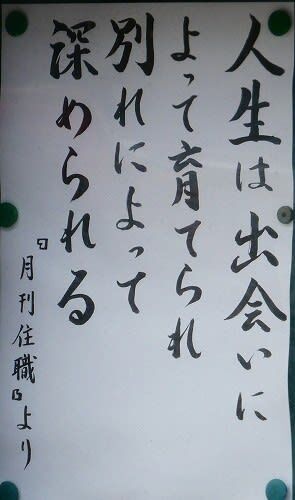 人生は出会いに
よって育てられ
別れによって
深められる
『月刊住職』より